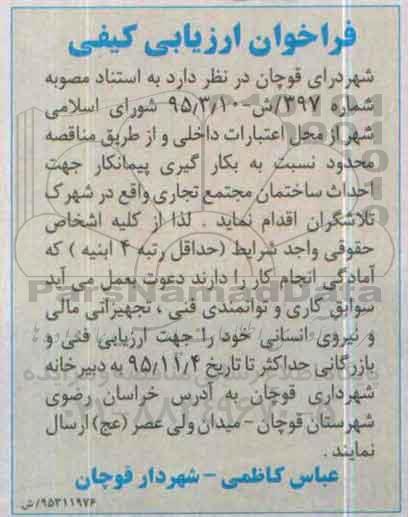 فراخوان ارزیابی کیفی
شهردرای قوچان در نظر دارد به استناد مصوبه
شماره ۳۹۷/ش-۹۵/۳/۱۰ شورای اسلامی
شهر از محل اعتبارات داخلی و از طریق مناقصه
محدود نسبت به بکار گیری پیمانکار جهت
احداث ساختمان مجتمع تجاری واقع در شهرک
تلاشگران اقدام نماید . لذا از کلیه اشخاص
حقوقی واجد شرایط (حداقل رتبه ۴ ابنیه ) که
آمادگی انجام کار را دارند دعوت بعمل می آید
سوابق کاری و توانمندی فنی ، تجهیزاتی مالی
و نیروی انسانی خود را جهت ارزیابی فنی و
بازرگانی حداکثر تا تاریخ ۹۵/۱۱/۴ به دبیرخانه
شهرداری قوچان به آدرس خراسان رضوی
شهرستان قوچان - میدان ولی عصر (عج) ارسال
نمایند .
عباس کاظمی - شهردار قوچان
۹۵۳۱۱۹۷۶/ش
ParsNamadData